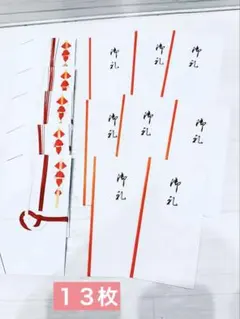 御礼
御礼
御礼
御礼
御礼
御礼
御礼
御礼
13枚